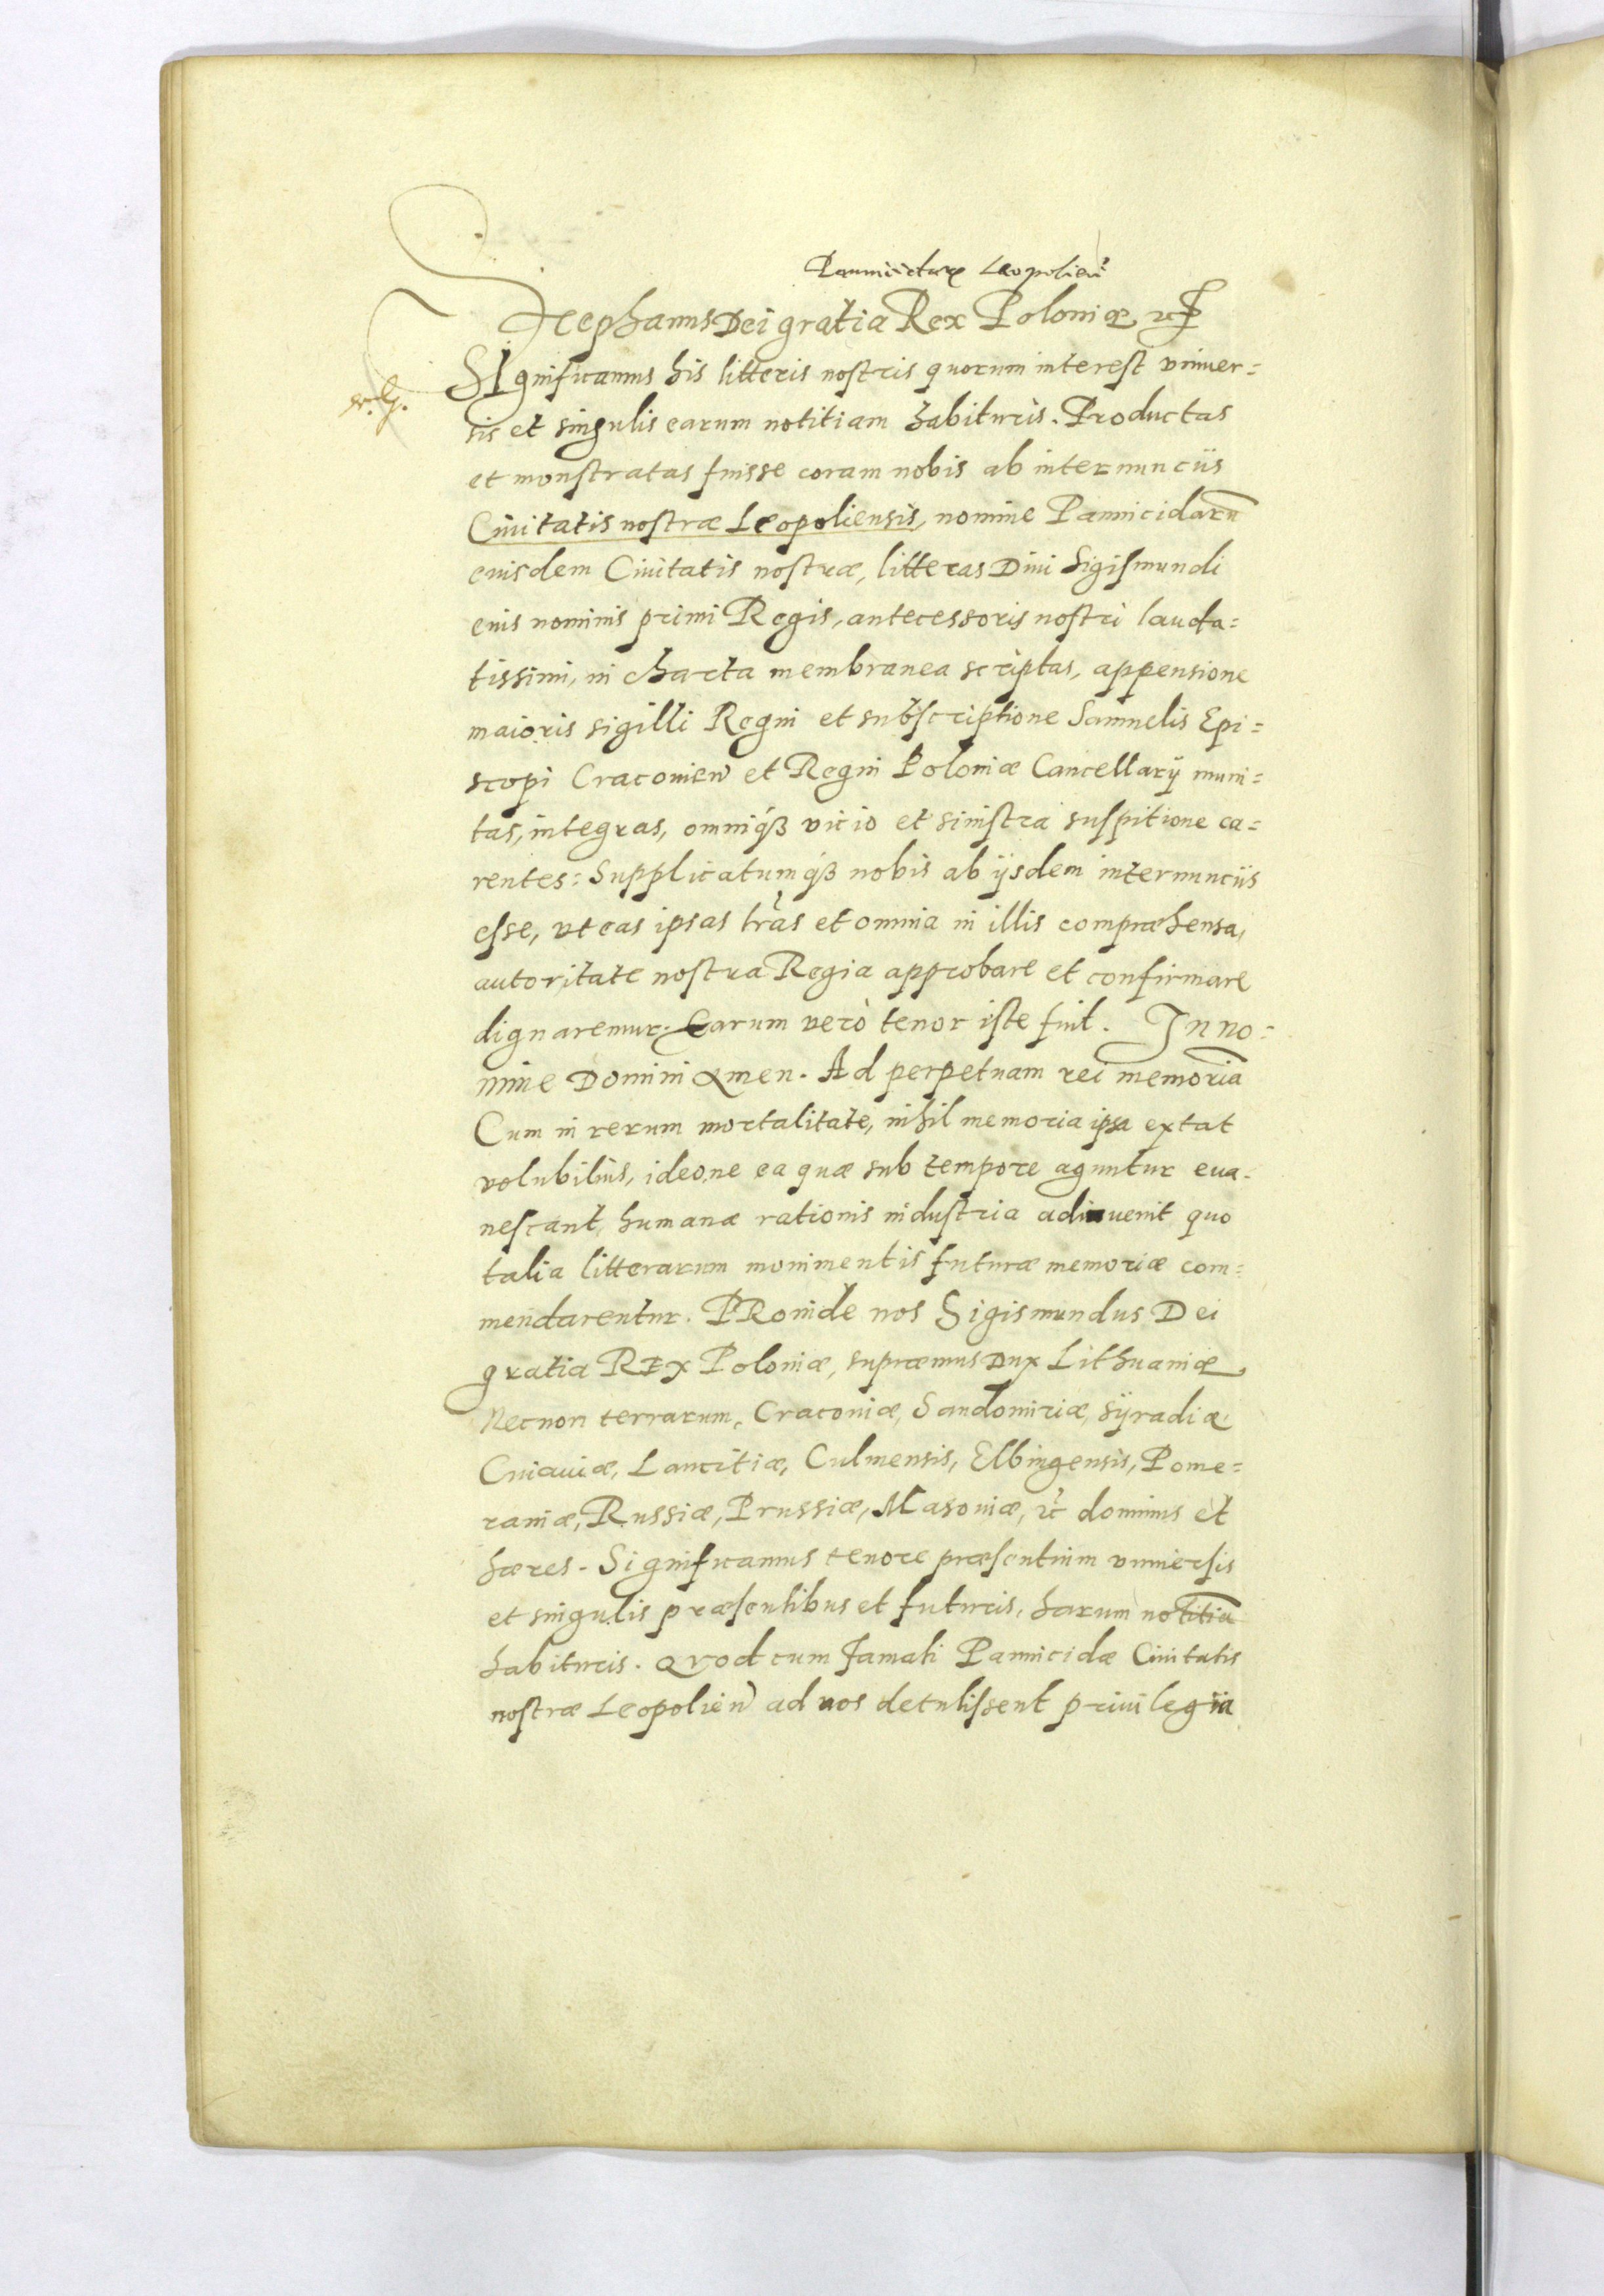 Pannicidarum Leopolien
Stephanus Dei gratia Rex Poloniæ etc
SIgnificamus his litteris nostris quorum interest vniuer=
sis et singulis earum notitiam habituris. Productas
et monstratas fuisse coram nobis ab internunciis
Ciuitatis nostræ Leopoliensis, nomine Pannicidarū
eiusdem Ciuitatis nostræ, litteras Diui Sigismundi
eius nominis primi Regis, antecessoris nostri lauda=
tissimi, in charta membranea scriptas, appensione
maioris sigilli Regni et subscriptione Samuelis Epi=
scopi Cracouien et Regni Poloniæ Cancellarij muni=
tas, integras, omniqȝ vicio et sinistra suspitione ca=
rentes: Supplicatumqȝ nobis ab ijsdem internunciis
esse, vt eas ipsas lras et omnia in illis compræhensa,
autoritate nostra Regia approbare et confirmare
dignaremur. Earum verò tenor iste fuit. In no=
mine Domini Amen. Ad perpetuam rei memoriā
Cum in rerum mortalitate, nihil memoria ipsa extat
volubilius, ideo ne ea quæ sub tempore aguntur eua=
nescant, humanæ rationis industria adinuenit quo
talia litterarum monimentis futuræ memoriæ com=
mendarentur. PRoinde nos Sigismundus Dei
gratia REx Poloniæ, supræmus Dux Lithuaniæ,
Necnon terrarum, Cracouiæ, Sandomiriæ, Syradiæ
Cuiauiæ, Lancitiæ, Culmensis, Elbingensis, Pome=
raniæ, Russiæ, Prussiæ, Masouiæ, etc dominus et
hæres. Significamus tenore præsentium vniuersis
et singulis præsentibus et futuris, harum notitiā
habituris. Quod cum famati Pannicidæ Ciuitatis
nostræ Leopolien ad nos detulissent priuilegia